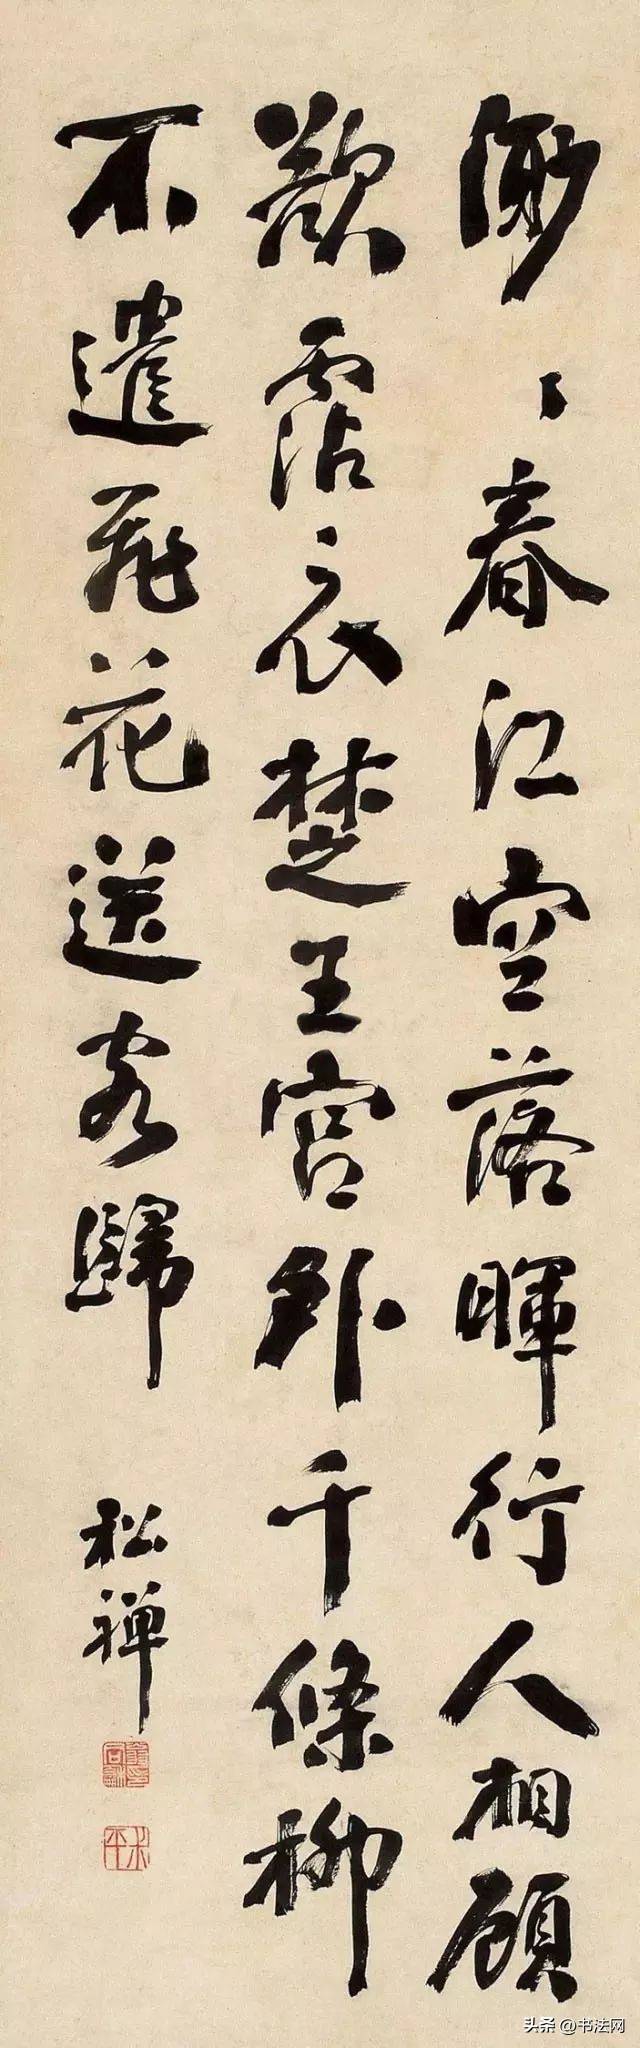 渺々春江空落暉行人相顧
欲霑衣楚王宮外千條柳
不遣飛花送客歸
松禪
翁同龢印
叔平
头条 @书法网